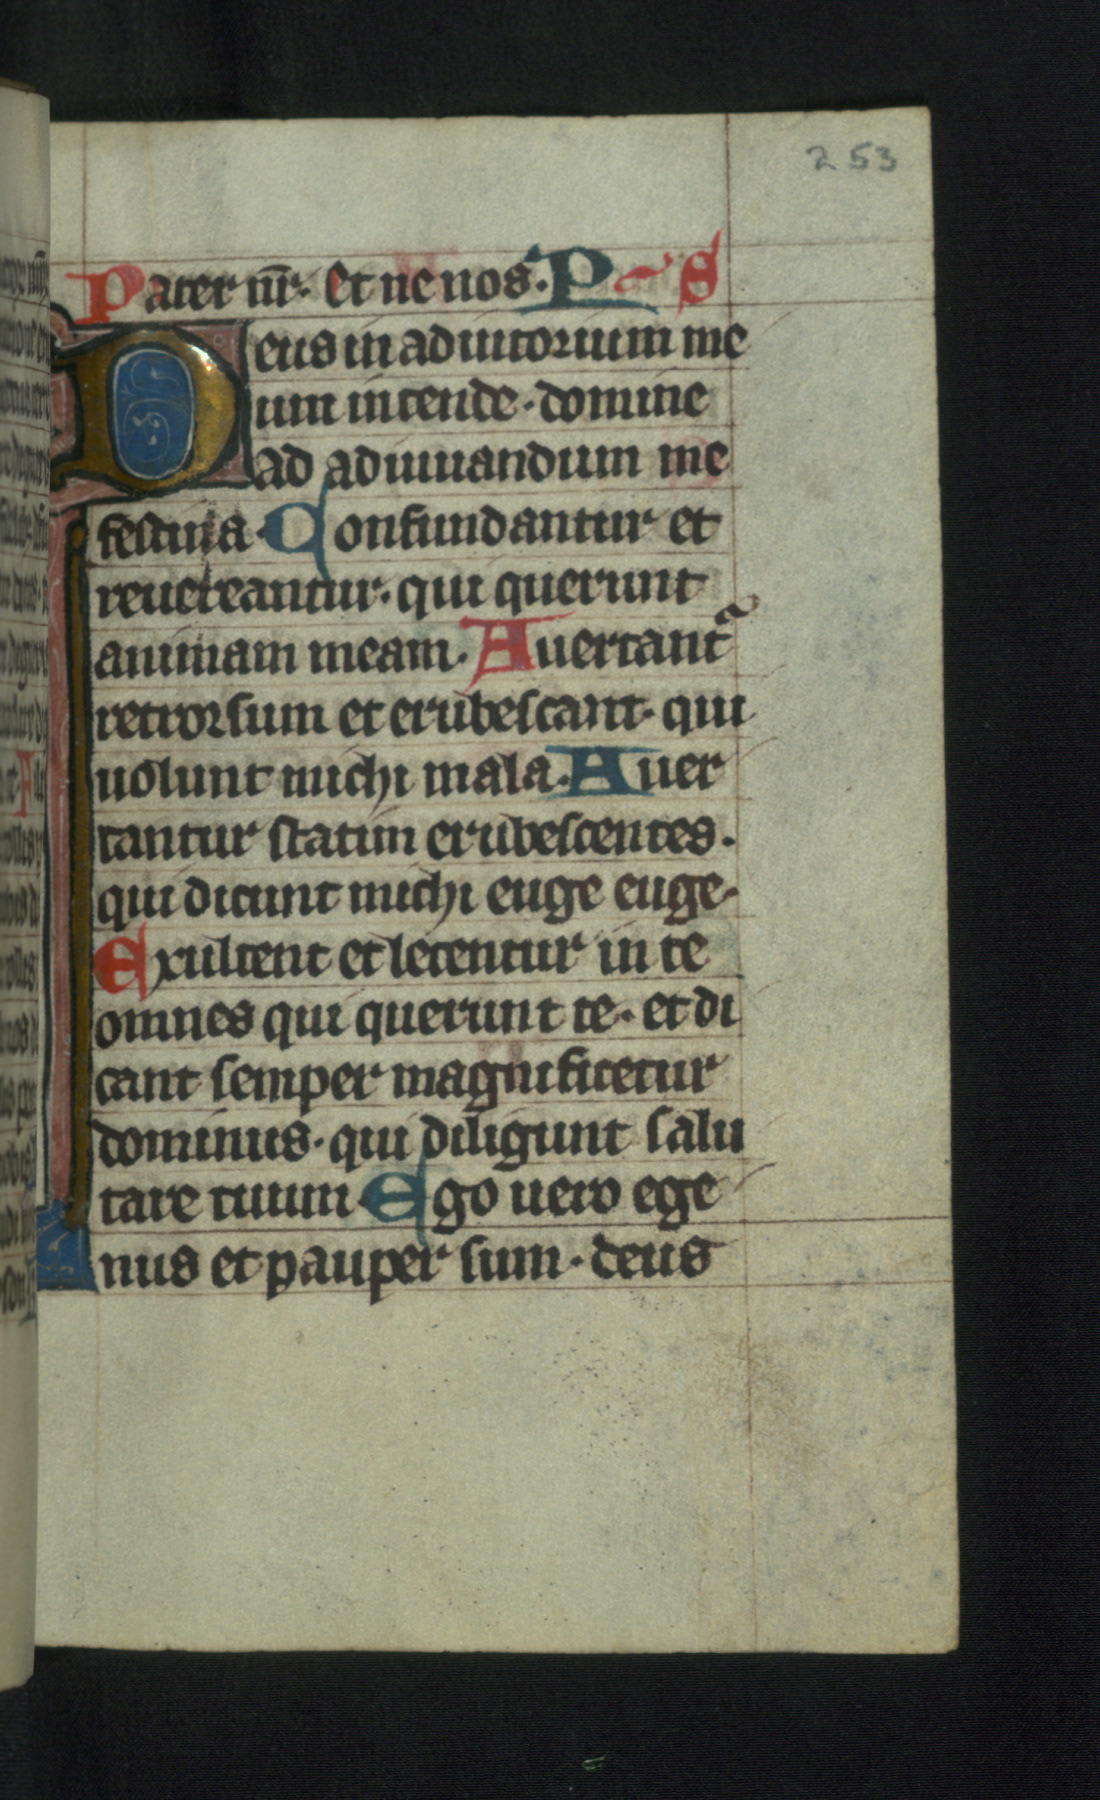 253
Pater nr̄. Et ne nos. P S
Deus in adiutorium me
um intende. domine
ad adiuuandum me
festina. Confundantur et
reuereantur. qui querunt
animam meam. Auertant᷑
retrorsum et erubescant. qui
uolunt michi mala. Auer
tantur statim erubescentes.
qui dicunt michi euge euge.
Exultent et letentur in te
omnes qui querunt te. et di
cant semper magnificetur
dominus. qui diligunt salu
tare tuum Ego uero ege
nus et pauper sum. deus